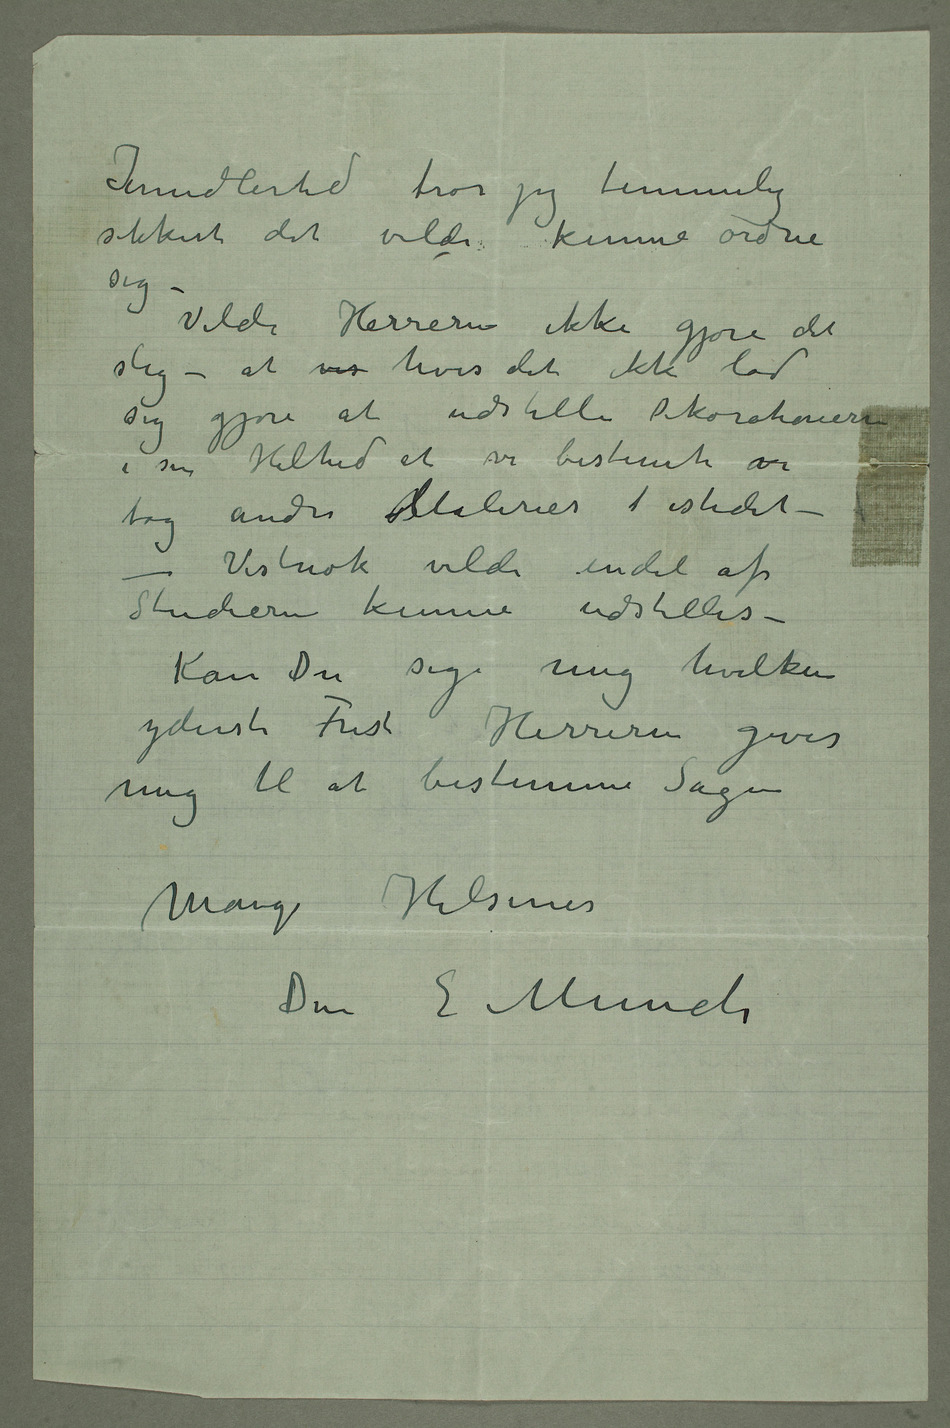 Imidlertid tror jeg temmelig
sikkert det vilde kunne ordne
sig –
Vilde Herrerne ikke gjøre det
slig – at vis hvis det ikke lod
sig gjøre at udstille Dekorationerne
i sin Helhed at vi bestemte vi
tog andre Malerier i istedet –
— Vistnok vilde endel af
Studierne kunne udstilles –
Kan Du sige mig hvilken
yderste Frist Herrerne giver
mig til at bestemme Sagen
Mange Hilsener
Din E Munch